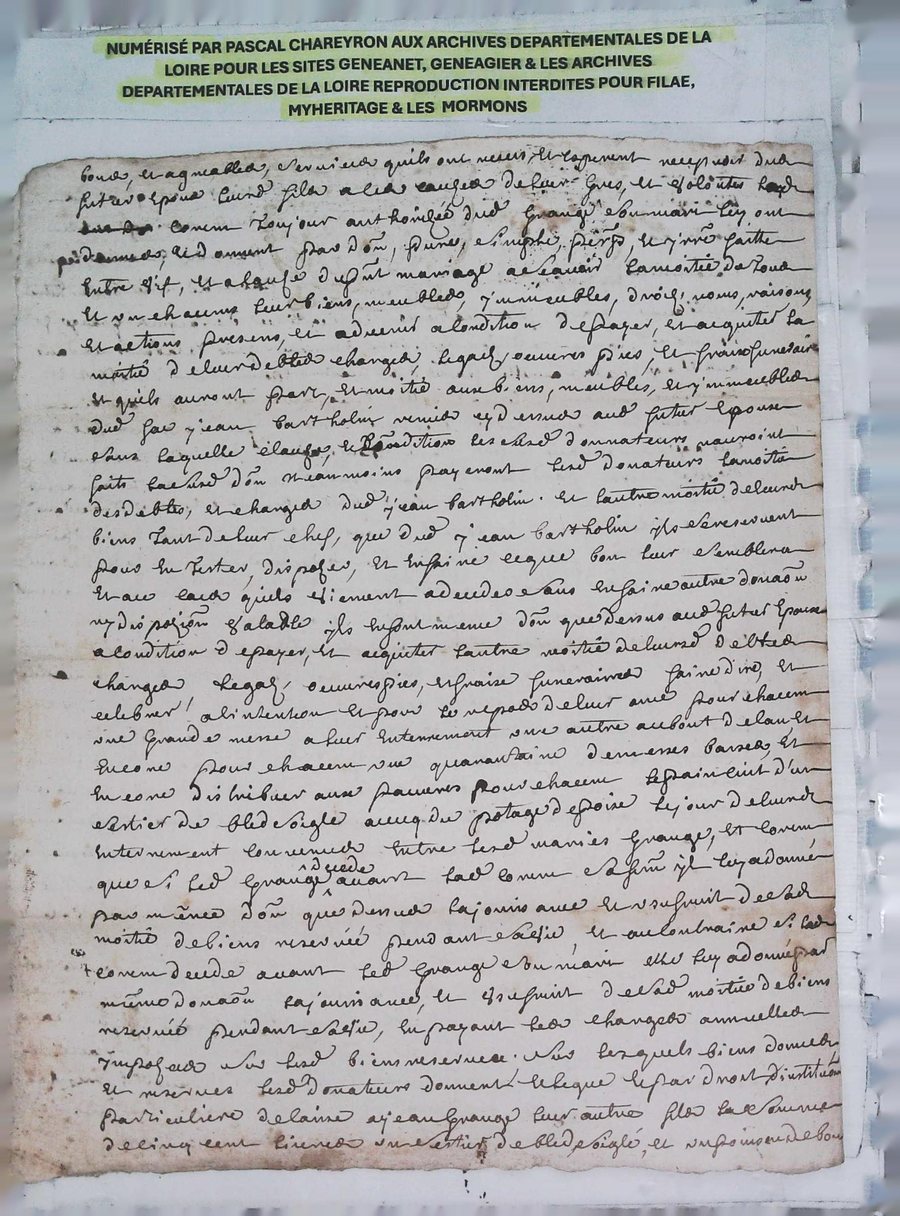 NUMÉRISÉ PAR PASCAL CHAREYRON AUX ARCHIVES DEPARTEMENTALES DE LA
LOIRE POUR LES SITES GENEANET, GENEAGIER & LES ARCHIVES
DEPARTEMENTALES DE LA LOIRE REPRODUCTION INTERDITES POUR FILAE,
MYHERITAGE & LES MORMONS
bons, et agreables, services quils ont receus, et esperent recepvoir dud
futur epoux leurd fils a les causes de leur gres, et volontes lad
corem toujour authorizée dud Grange son mari luy ont
et donnent par don, pure, simple, et faitte
entre vif, et a cause du pnt mariage a sçavoir la moitié de tous
et un chacuns leur biens, meubles, ymmeubles, drois, noms, raisons
et actions presens, et advenir a condition de payer, et acquiter la
moitié de leur debtes charges, legats, oeuvres pies, et frais funeraires
et quils auront part, et moitié aux biens, meubles, et ymmeubles
dud jean bartholin cy dessus aud futur epoux
sans laquelle clause, et condition lesd donnateurs nauroint
faits lasusd don neanmoins payeront lesd donateurs la moitie
des debtes, et charges dud jean bartholin. et lautre moitié de leurd
biens tant de leur chef, que dud jean bartholin ils se reservent
pour en tester, disposer, et en faire ce que bon leur semblera
et au cas quils viennent a decedes sans en faire autre donaon
ny dispozion valable ils en font meme don que dessus aud futur epoux
a condition de payer, et acquiter lautre moitié de leursd debtes
charges, legats, oeuvres pies, et frais funeraires faire dire, et
celebrer a lintention et pour le repos de leur ame pour chacun
une grande messe a leur enterrement une autre au bout de lan et
encore pour chacun une quarantaine de messes basses, et
encore distribuer aux pauvres pour chacun le pain cuit dun
sestier de bled seigle avecq du potage de pois le jour de leurd
enterrement convenu entre lesd maries grange, et corem
que si led Grange decede avant lad corem sa fem il luy a donné
par meme don que dessus la jouissance et usufruit de sad
moitié de biens reservée pendant sa vie, et au contraire si lad
corem decede avant led Grange son mari elle luy a donné par
meme donaon la jouissance, et usufruit de sad moitie de biens
reservée pendant sa vie, en payant les charges annuelles
imposées sur lesd biens reserves. sur lesquels biens donnes
et reserves lesd donateurs donnent et legue et par droit dinstituon
particuliere delaisse a jean Grange leur autre fils la somme
de cinq cent livres un sestier de bled seigle, et un de bon